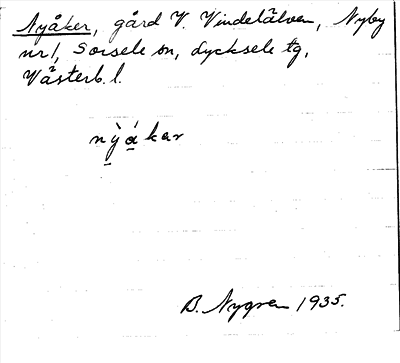 Nyåker, gård V. Vindelälven, Nyby
nr 1, Sorsele sn, Lycksele tg,
Västerb. l.
nỳákar
B. Nygren 1935.